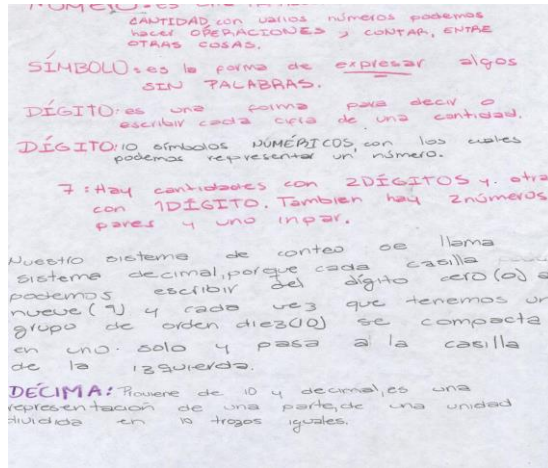 NÚMERO: es una
CANTIDAD, con varios números podemos
hacer OPERACIONES y CONTAR, ENTRE
OTRAS COSAS.
SÍMBOLO: es la forma de expresar algos
SIN PALABRAS.
DÍGITO: es una forma para decir o
escribir cada cifra de una cantidad.
DÍGITO: 10 símbolos NUMÉRICOS, con los cuales
podemos representar un número.
7: Hay cantidades con 2DÍGITOS y otra
con 1DÍGITO. Tambien hay 2números
pares y uno inpar.
Nuestro sistema de conteo se llama
sistema decimal, porque cada casilla
podemos escribir del dígito cero (0) a
nueve (9) y cada vez que tenemos un
grupo de orden diez(10) se compacta
en uno solo y pasa a la casilla
de la izquierda.
DÉCIMA: Proviene de 10 y decimal, es una
representación de una parte, de una unidad
dividida en 10 trozos iguales.